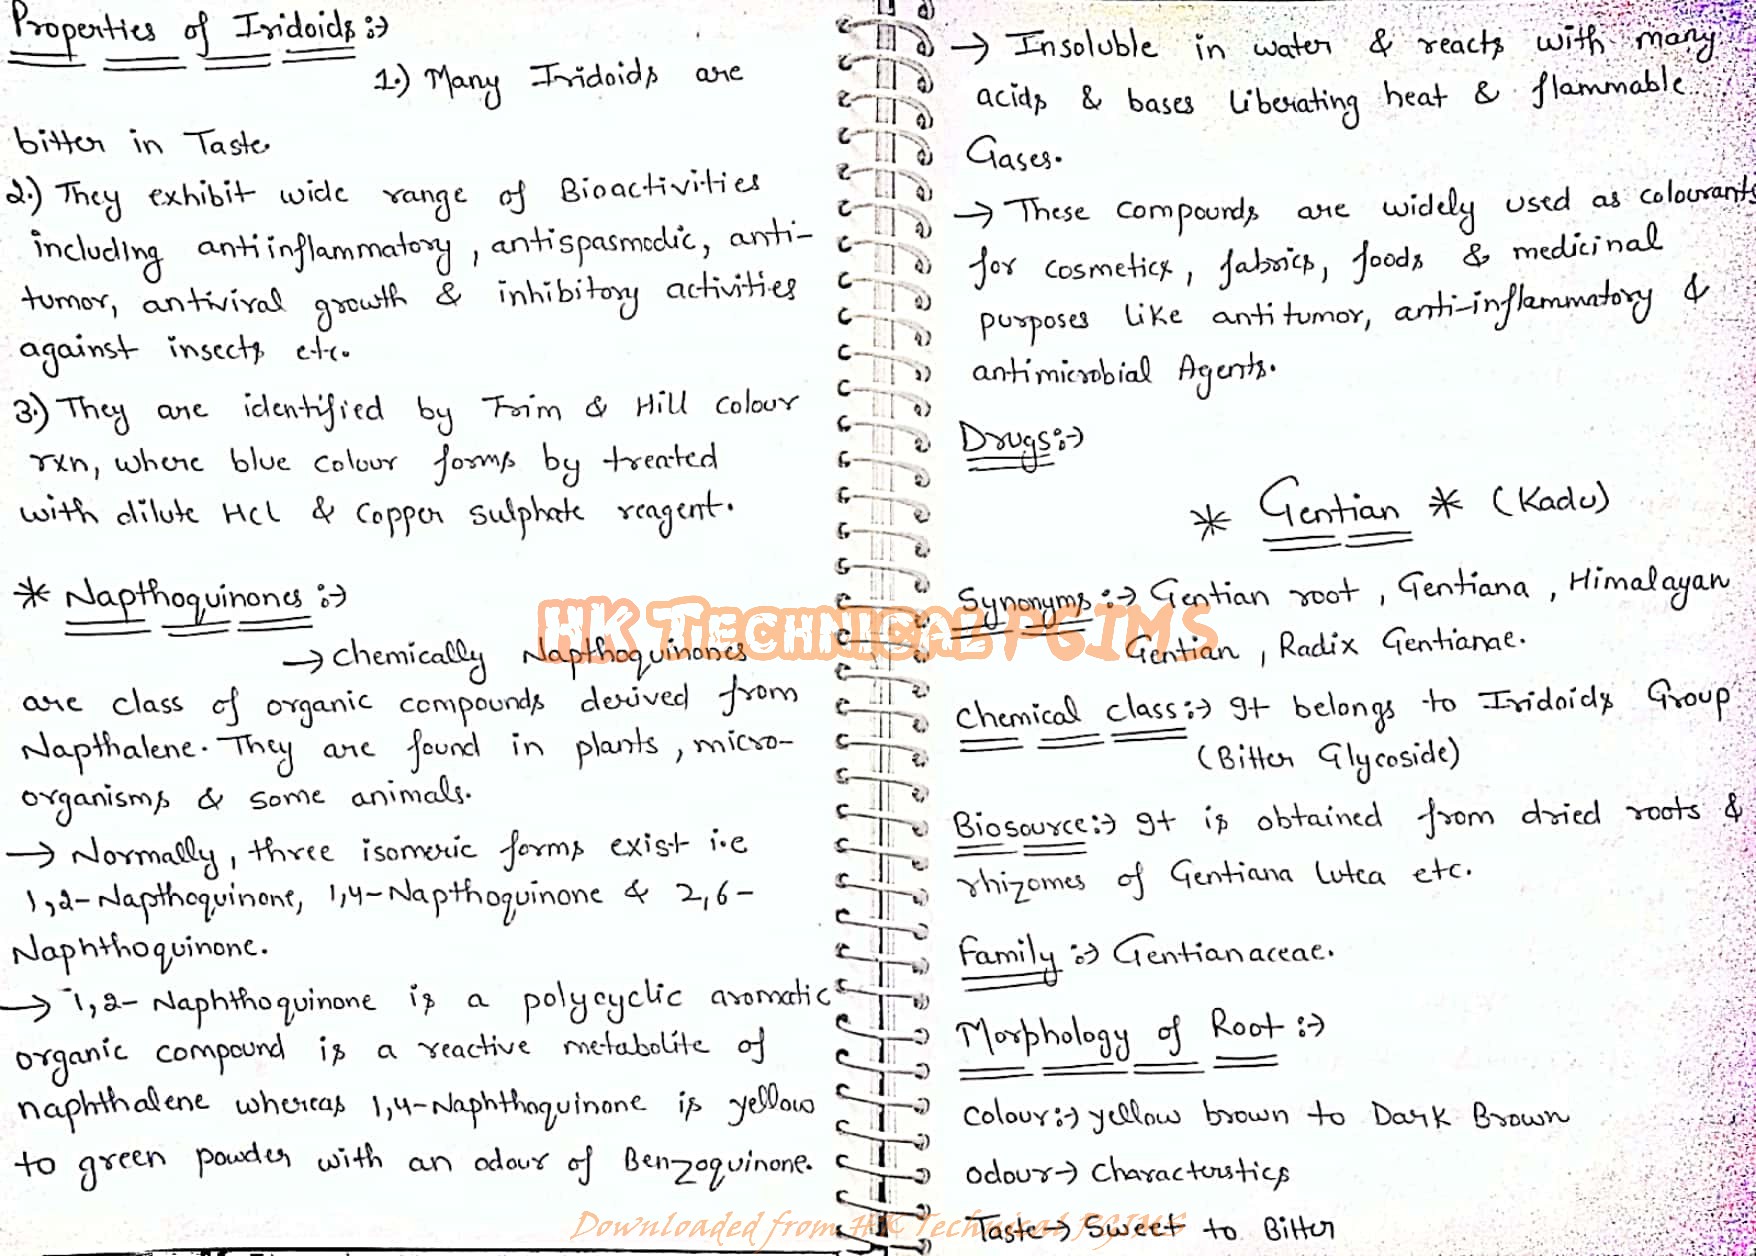 Properties of Iridoids :→
1.) Many Iridoids are
bitter in Taste.
2.) They exhibit wide range of Bioactivities
including antiinflammatory, antispasmodic, anti-
tumor, antiviral growth & inhibitory activities
against insects etc.
3.) They are identified by Trim & Hill colour
rxn, where blue colour forms by treated
with dilute Hcl & Copper sulphate reagent.
* Napthoquinones :→
→ Chemically Napthoquinones
are class of organic compounds derived from
Napthalene. They are found in plants, micro-
organisms & some animals.
→ Normally, three isomeric forms exist i.e
1,2-Napthoquinone, 1,4-Napthoquinone & 2,6-
Naphthoquinone.
→ 1,2- Naphthoquinone is a polycyclic aromatic
organic compound is a reactive metabolite of
naphthalene whereas 1,4-Naphthoquinone is yellow
to green powder with an odour of Benzoquinone.
→ Insoluble in water & reacts with many
acids & bases liberating heat & flammable
Gases.
→ These compounds are widely used as colourants
for cosmetics, fabrics, foods & medicinal
purposes like antitumor, anti-inflammatory &
antimicrobial Agents.
Drugs :→
* Gentian * (Kadu)
Synonyms :→ Gentian root, Gentiana, Himalayan
Gentian, Radix Gentianae.
Chemical class :→ It belongs to Iridoids Group
(Bitter Glycoside)
Biosource :→ It is obtained from dried roots &
rhizomes of Gentiana lutea etc.
Family :→ Gentianaceae.
Morphology of Root :→
Colour :→ yellow brown to Dark Brown
odour → Characterstics
Taste → Sweet to Bitter
HK Technical PGIMS
Downloaded from HK Technical PGIMS